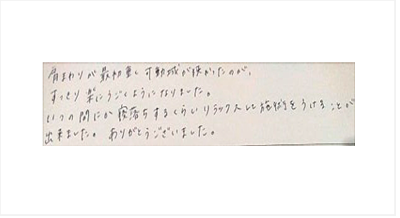 肩まわりが最初重く可動域が狭かったのが、
すっきり楽にうごくようになりました。
いつの間にか寝落ちするくらいリラックスして施術をうけることが
出来ました。ありがとうございました。